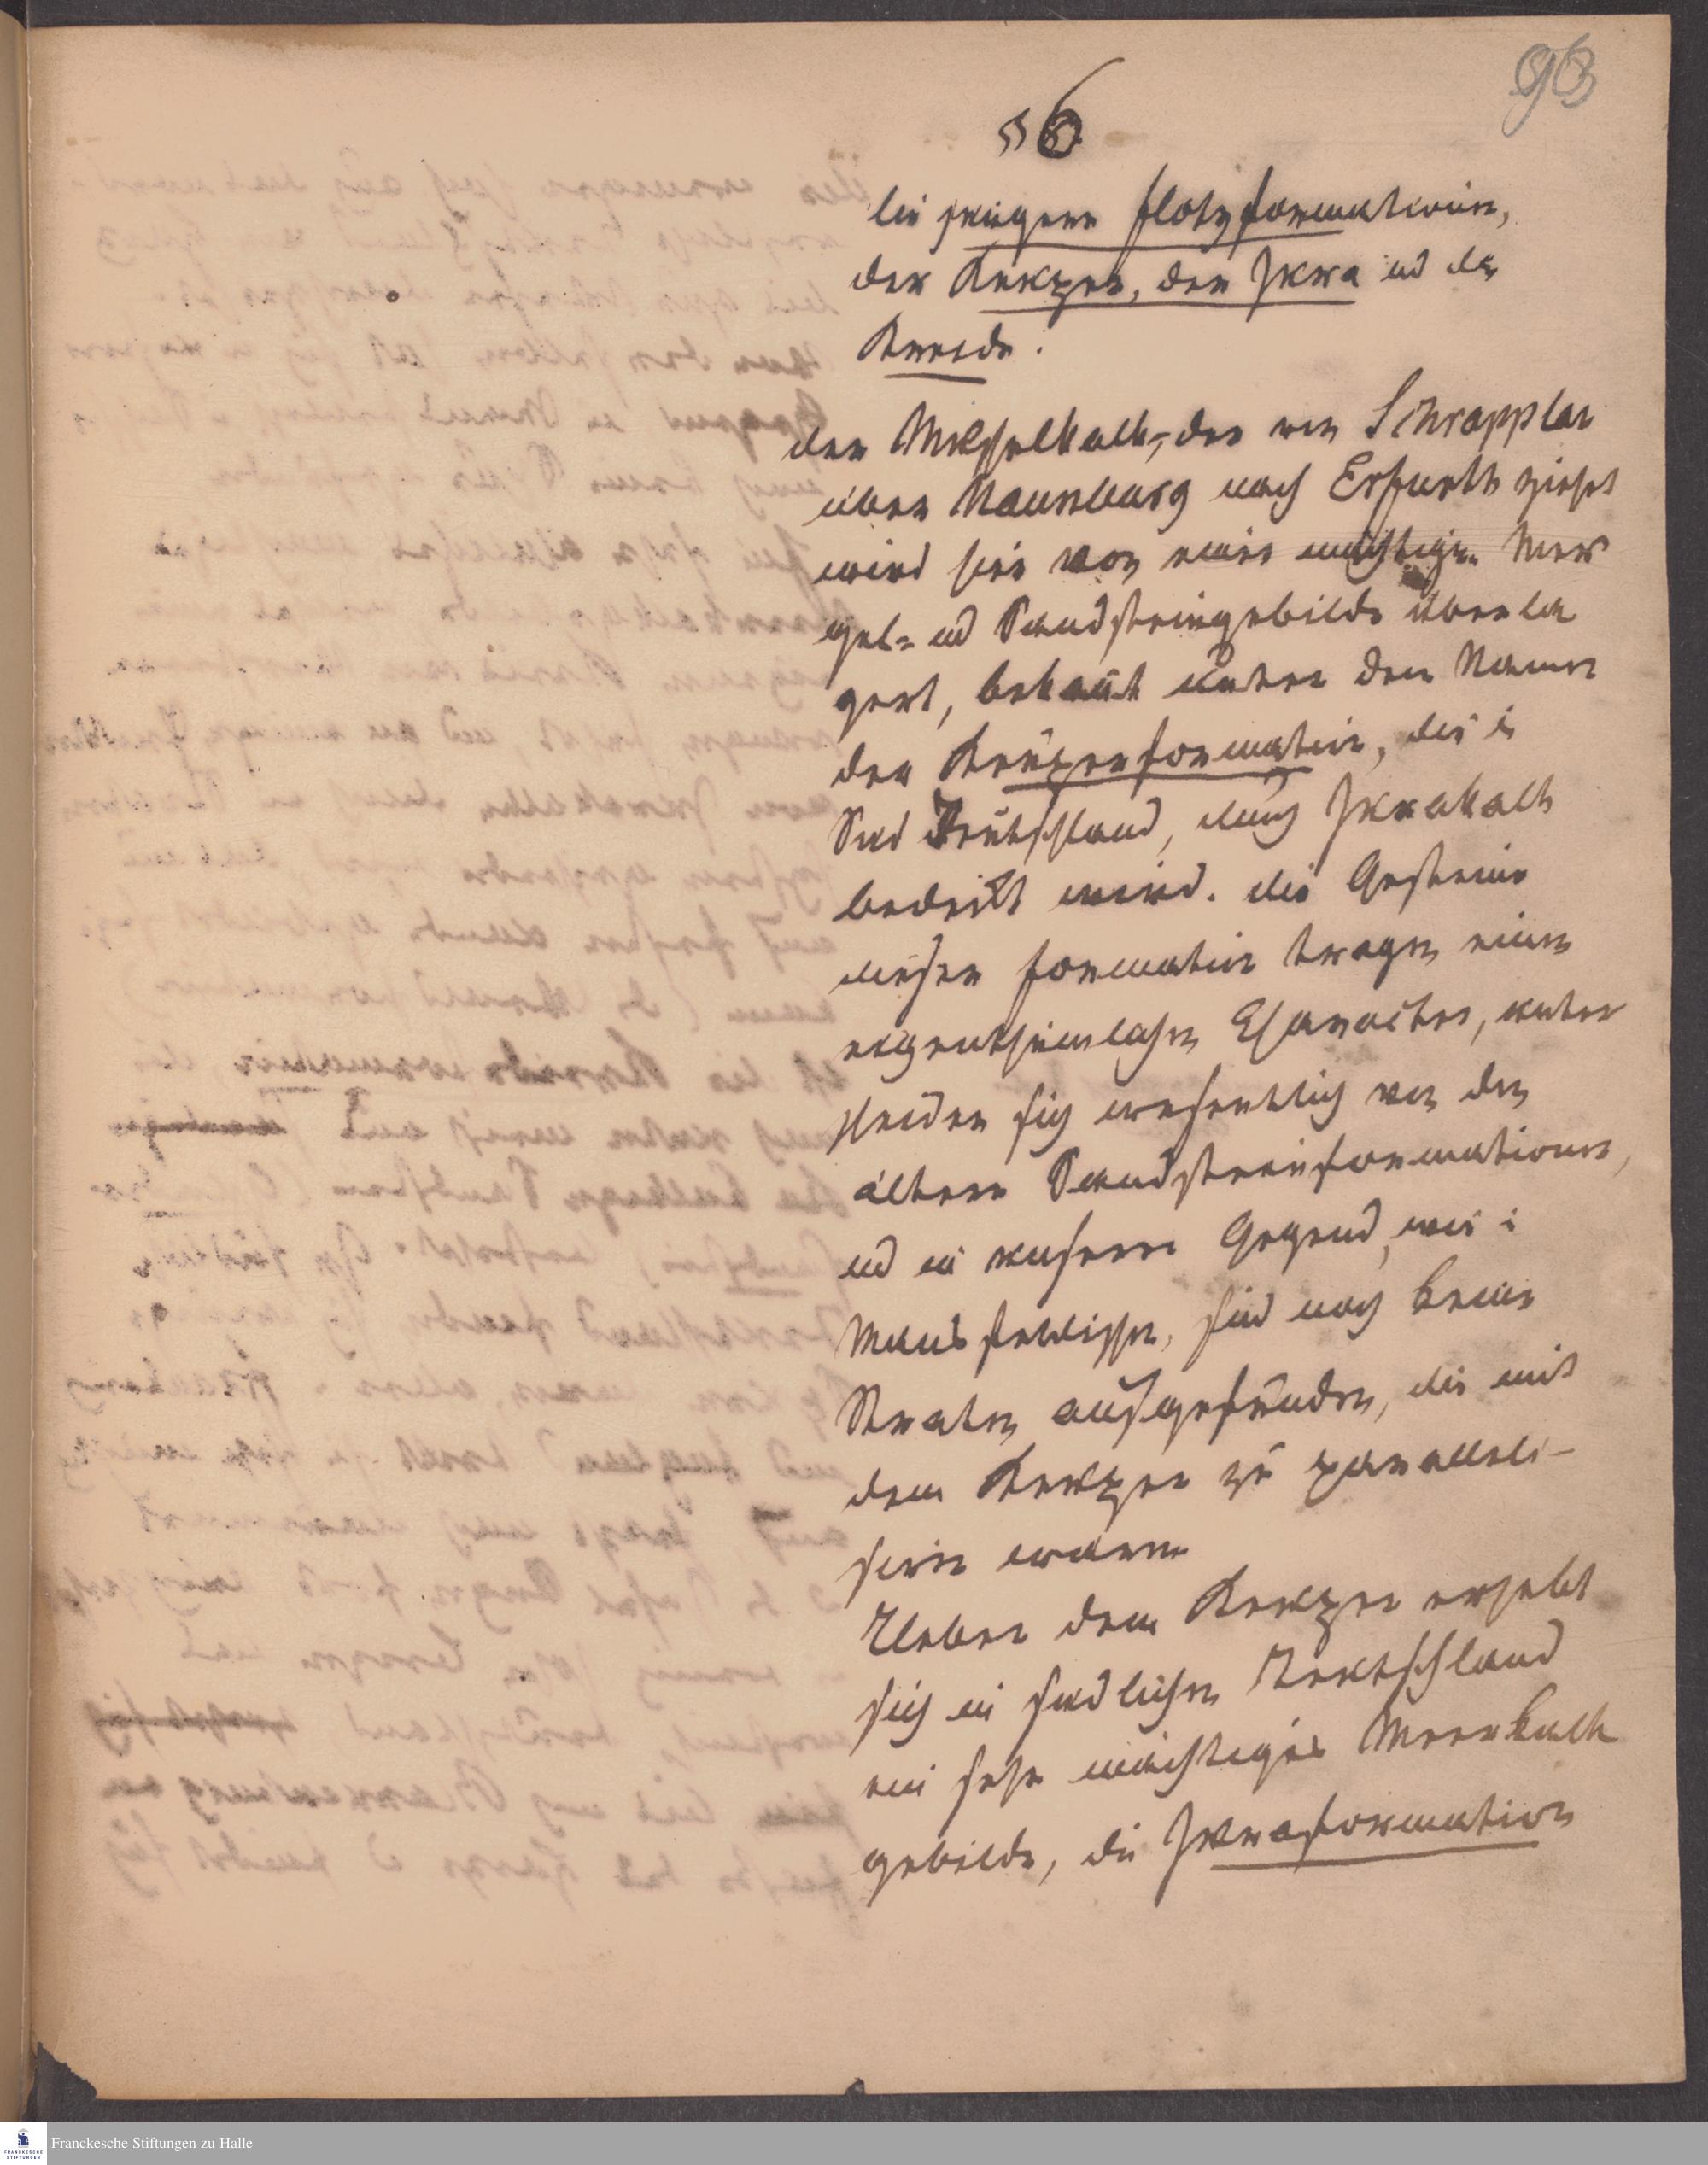 93
§ 6
die jüngern Flötzformationen,
der Keuper, der Jura und die
Kreide.
Der Muschelkalk, der von Schrapplau
über Naumburg nach Erfurth zieht
wird hier von einer mächtigen Mer
gel- und Sandsteingebilde überla
gert, bekañt unter dem Namen
der Keuperformation, die in
Süd Deutschland, durch Jurakalk
bedeckt wird. Die Gesteine
dieser Formation tragen einen
eigenthümlichen Character, unter
scheiden sich wesentlich von den
älteren Sandsteinformationen,
und in unserer Gegend, wie i
Mansfeldischen, sind noch keine
Straten aufgefunden, die mit
dem Keuper zu paralleli-
siren wären
Ueber dem Keuper erhebt
sich im südlichen Deutschland
ein sehr mächtiges Meerkalk
gebilde, die Juraformation
Franckesche Stiftungen zu Halle